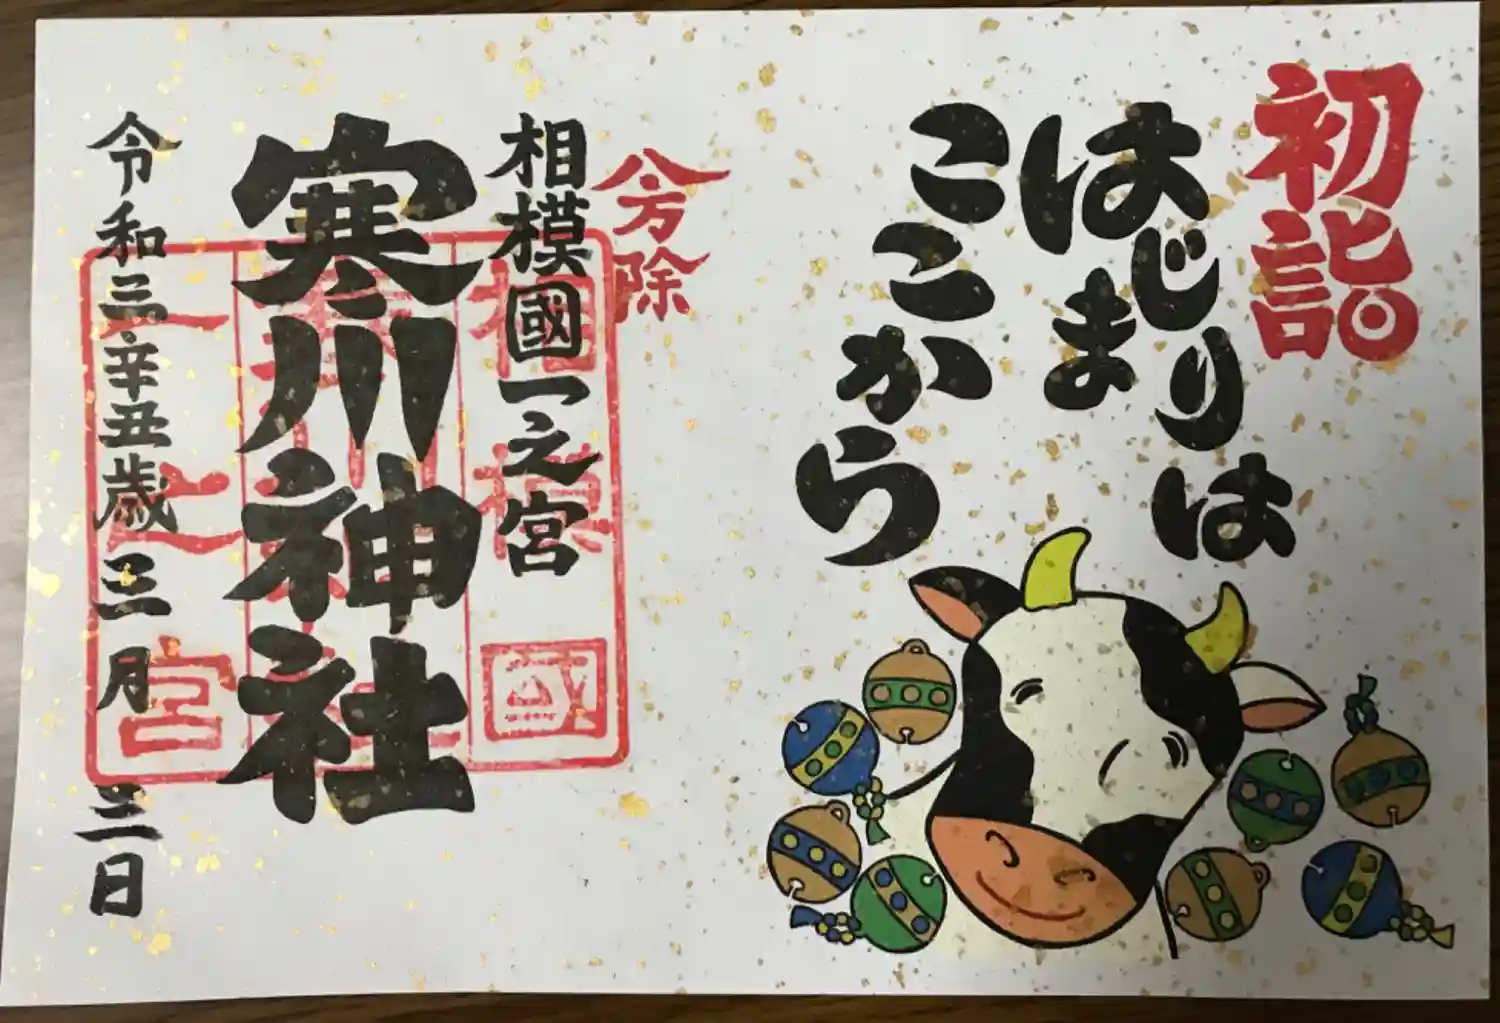 初詣
はじまりは
ここから
八方除
相模國一之宮
寒川神社
令和三辛丑歳三月三日
相模國
寒川神社
一之宮